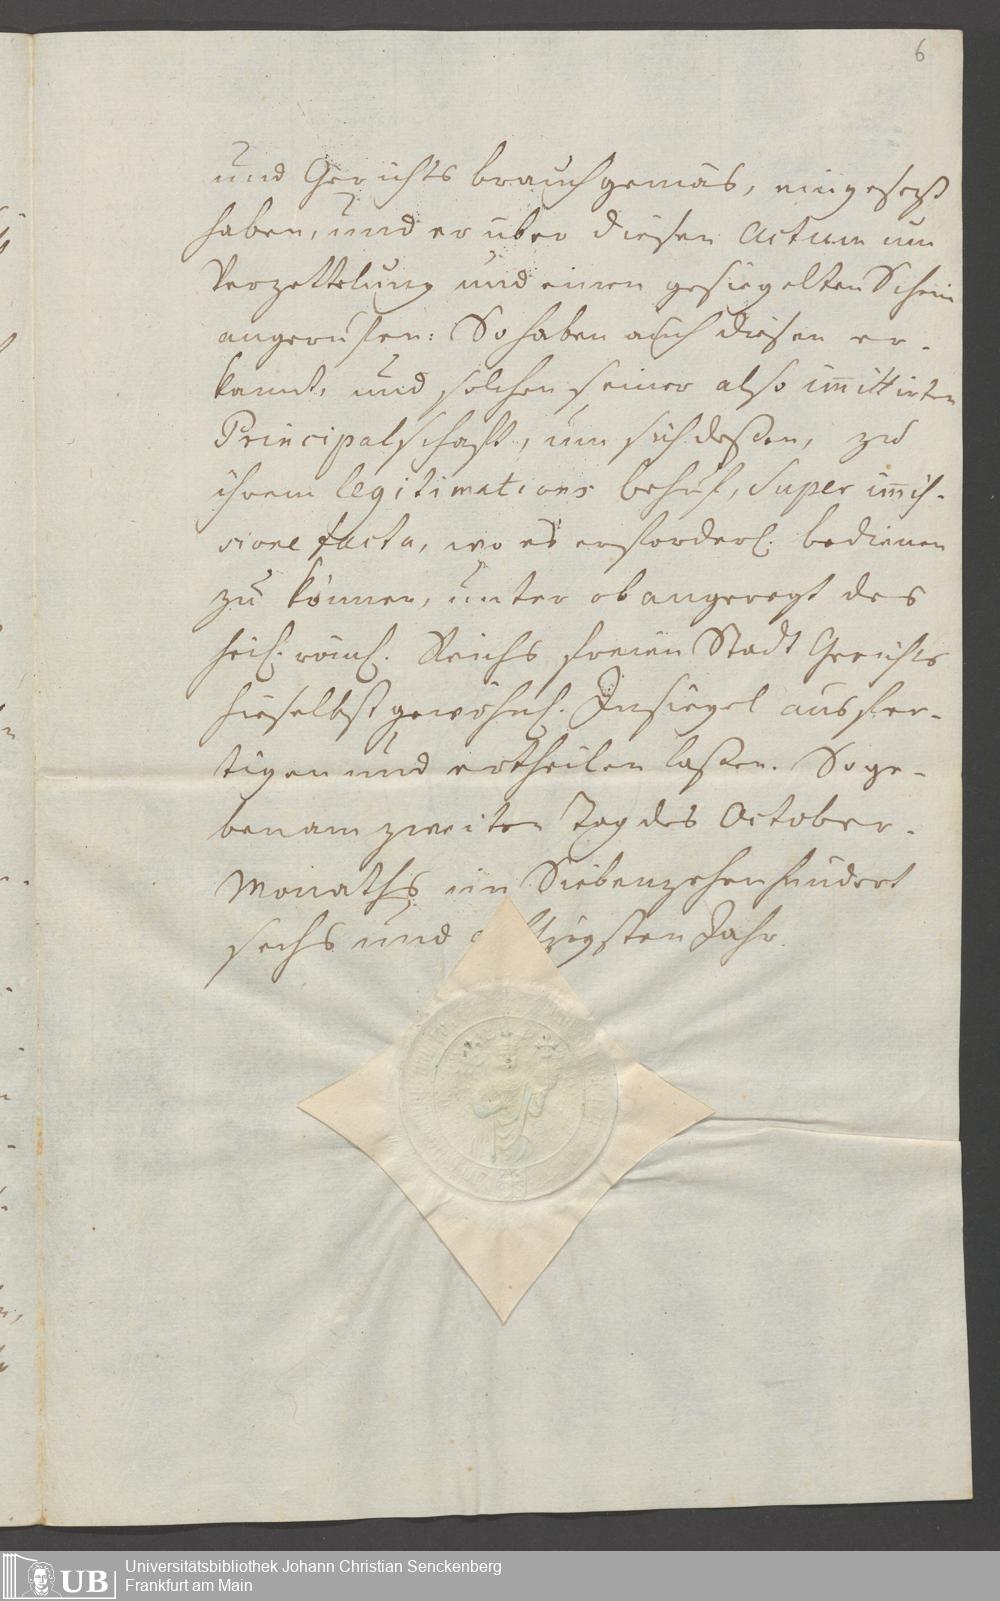 6
und Gerichts brauch gemäs, eingesezt
haben, und er über diesen Actum um
Verzettelung und einen gesiegelten Schein
angerufen: So haben auch diesen er-
kannt, und solchen seiner also im̅ittirten
Principalschafft, um sich deßen, zu
ihrem legitimations behuf, super im̅is-
sione facta, wo es erforderl. bedienen
zu können, unter obangeregt des
heil. röml. Reichs freien Stadt Gerichts
hieselbst gewöhnl. Insiegel ausfer-
tigen und ertheilen laßen. So ge-
ben am zweiten Tag des October-
Monaths im Siebenzehenhundert
sechs und achtzigsten Jahr.
UB
Universitätsbibliothek Johann Christian Senckenberg
Frankfurt am Main